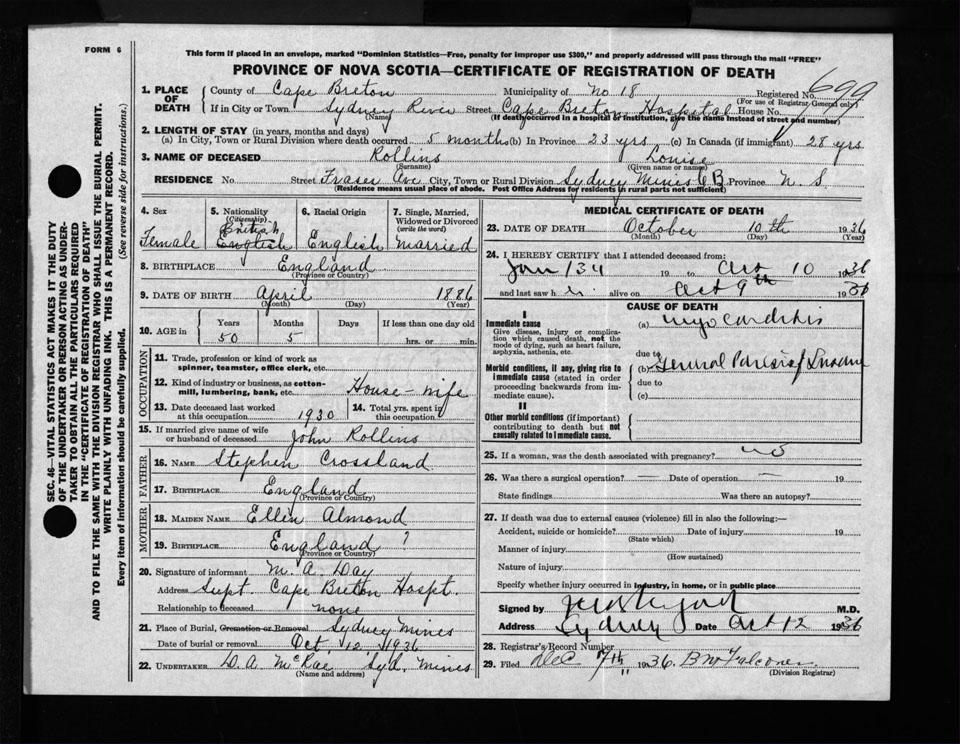 FORM 6
This form if placed in an envelope, marked "Dominion Statistics—Free, penalty for improper use $300," and properly addressed will pass through the mail "FREE"
PROVINCE OF NOVA SCOTIA—CERTIFICATE OF REGISTRATION OF DEATH
1. PLACE OF DEATH
County of Cape Breton Municipality of No 18 Registered No. 699
(For use of Registrar General only)
If in City or Town Sydney River Street Cape Breton Hospital House No.
(Name) (If death occurred in a hospital or institution, give the name instead of street and number)
2. LENGTH OF STAY (in years, months and days)
(a) In City, Town or Rural Division where death occurred 5 months (b) In Province 23 yrs (c) In Canada (if immigrant) 28 yrs
3. NAME OF DECEASED Rollins Louise
(Surname) (Given name or names)
RESIDENCE No. Street Fraser Ave City, Town or Rural Division Sydney Mines C B Province N. S.
(Residence means usual place of abode. Post Office Address for residents in rural parts not sufficient)
4. Sex
Female
5. Nationality
(Citizenship)
British
English
6. Racial Origin
English
7. Single, Married, Widowed or Divorced
(write the word)
married
8. BIRTHPLACE England
(Province or Country)
9. DATE OF BIRTH April 1886
(Month) (Day) (Year)
10. AGE in
Years Months Days If less than one day old
50 5 hrs. or min.
OCCUPATION
11. Trade, profession or kind of work as
spinner, teamster, office clerk, etc.
12. Kind of industry or business, as cotton-
mill, lumbering, bank, etc. House-wife
13. Date deceased last worked
at this occupation 1930
14. Total yrs. spent in
this occupation
15. If married give name of wife
or husband of deceased John Rollins
FATHER
16. NAME Stephen Crossland
17. BIRTHPLACE England
(Province or Country)
MOTHER
18. MAIDEN NAME Ellen Almond
19. BIRTHPLACE England ?
(Province or Country)
20. Signature of informant M. A. Day
Address Supt. Cape Breton Hospt.
Relationship to deceased none
21. Place of Burial, Cremation or Removal Sydney Mines
Date of burial or removal Oct. 12, 1936
22. UNDERTAKER D. A. McRae Syd. Mines
(Name and address)
MEDICAL CERTIFICATE OF DEATH
23. DATE OF DEATH October 10th 1936
(Month) (Day) (Year)
24. I HEREBY CERTIFY that I attended deceased from:
19 to Oct 10 1936
and last saw h er alive on Oct 9th 1936
CAUSE OF DEATH
I
Immediate cause
Give disease, injury or complication which caused death, not the mode of dying, such as heart failure, asphyxia, asthenia, etc.
(a) myocarditis
due to
Morbid conditions, if any, giving rise to immediate cause (stated in order proceeding backwards from immediate cause).
(b) General Paresis of Insane
due to
(c)
II
Other morbid conditions (if important) contributing to death but not causally related to immediate cause.
25. If a woman, was the death associated with pregnancy? no
26. Was there a surgical operation? Date of operation 19
State findings Was there an autopsy?
27. If death was due to external causes (violence) fill in also the following:—
Accident, suicide or homicide? Date of injury 19
(State which)
Manner of injury
(How sustained)
Nature of injury
Specify whether injury occurred in industry, in home, or in public place
Signed by M.D.
Address Sydney Date Oct 12 1936
28. Registrar's Record Number
29. Filed Dec 7th 1936. Falconer
(Division Registrar)
SEC. 46—VITAL STATISTICS ACT MAKES IT THE DUTY
OF THE UNDERTAKER OR PERSON ACTING AS UNDER-
TAKER TO OBTAIN ALL THE PARTICULARS REQUIRED
IN THE "CERTIFICATE OF REGISTRATION OF DEATH"
AND TO FILE THE SAME WITH THE DIVISION REGISTRAR WHO SHALL ISSUE THE BURIAL PERMIT.
WRITE PLAINLY WITH UNFADING INK. THIS IS A PERMANENT RECORD.
Every item of information should be carefully supplied. (See reverse side for instructions.)